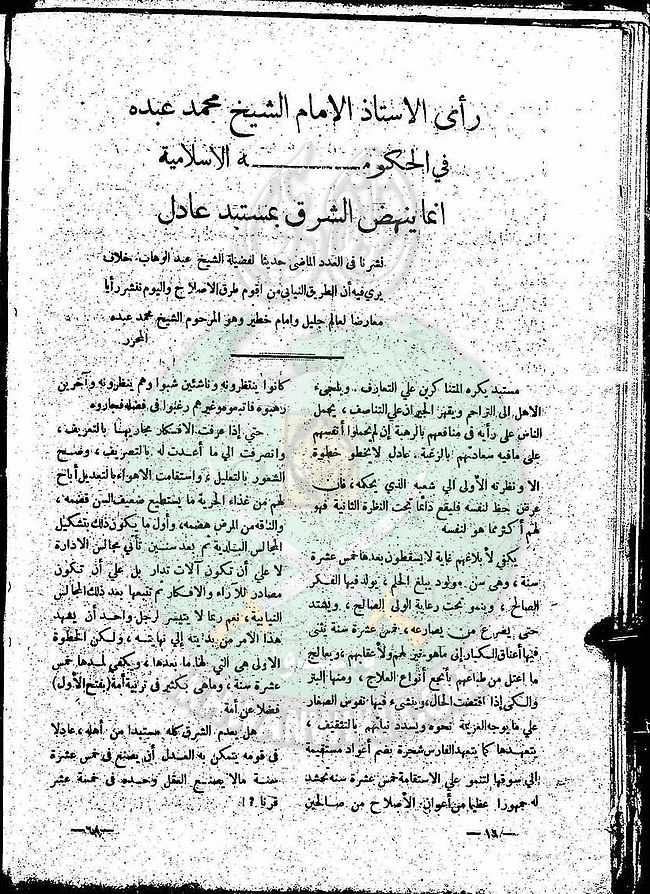 رأى الاستاذ الامام الشيخ محمد عبده
في الحكومـــــــــة الاسلامية
انما ينهض الشرق بمستبد عادل
نشرنا فى العدد الماضى حديثا لفضيلة الشيخ عبد الوهاب خلاف
يرى فيه أن الطريق النيابى من أقوم طرق الاصلاح واليوم ننشر رأيا
معارضا لعالم جليل وامام خطير وهو المرحوم الشيخ محمد عبده
المحرر
مستبد يكره المتناكرين على التعارف . ويلجىء
الاهل الى التراحم ويقهر الجيران على التناصف ، يحمل
الناس على رأيه فى منافعهم بالرهبة إن لم يحملوا أنفسهم
على مافيه سعادتهم بالرغبة . عادل لا يخطو خطوة
الا ونظرته الأولى الى شعبه الذي يحكمه ، فان
عرض حظ لنفسه فليقع دائما تحت النظرة الثانية فهو
لهم أكثر مما هو لنفسه
يكفى لابلاغهم غاية لا يسقطون بعدها خمس عشرة
سنة ، وهى سن مولود يبلغ الحلم ، يولد فيها الفكر
الصالح ، وينمو تحت رعاية الولى الصالح ، ويشتد
حتى يصرع من يصارعه ، خمس عشرة سنة يثنى
فيها أعناق الكبار إلى ماهو خير لهم ولأعقابهم ، ويعالج
ما اعتل من طباعهم بأنجع أنواع العلاج ، ومنها البتر
والكى إذا اقتضت الحال ، وينشىء فيها نفوس الصغار
على ما وجه العزيمة نحوه ويسدد نياتهم بالتثقيف ،
يتعهدها كما يتعهد الغارس شجره بضم أعواد مستقيمة
الى سوقها لتنمو على الاستقامة خمس عشرة سنة تحشد
له جمهورا عظيما من أعوان الاصلاح من صالحين
كانوا ينتظرونه وناشئين شبوا وهم ينظرونه وآخرين
رهبوه فاتبعوه وغيرهم رغبوا فى فضله فجاروه
حتى إذا عرفت الافكار مجاريها بالتعريف ،
وانصرفت الى ما أعدت له بالتصريف ، وصح
الشعور بالتعليل ، واستقامت الاهواء بالتعديل أباح
لهم من غذاء الحرية ما يستطيع ضعيف السن قضمه ،
والناقه من المرض هضمه ، وأول ما يكون ذلك بتشكيل
المجالس البلدية ثم بعد سنين تأتي مجالس الادارة
لا على أن تكون آلات تدار بل على أن تكون
مصادر للآراء والافكار ثم تتبعها بعد ذلك المجالس
النيابية ، نعم ربما لا يتيسر لرجل واحد أن يشهد
هذا الامر من بدايته إلى نهايته ، ولكن الخطوة
الاولى هى التي لها ما بعدها ، ويكفى لمدها خمس
عشرة سنة ، وماهى بكثير فى تربية أمة (بفتح الأول)
فضلا عن أمة
هل يعدم الشرق كله مستبدا من أهله ، عادلا
فى قومه يتمكن به العدل أن يصنع فى خمس عشرة
سنة مالا يصنع العقل وحده فى خمسة عشر
قرنا ؟!